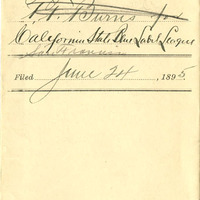 T. F. Burns for
California State Blue Label League
San Francisco
Filed June 24, 1895